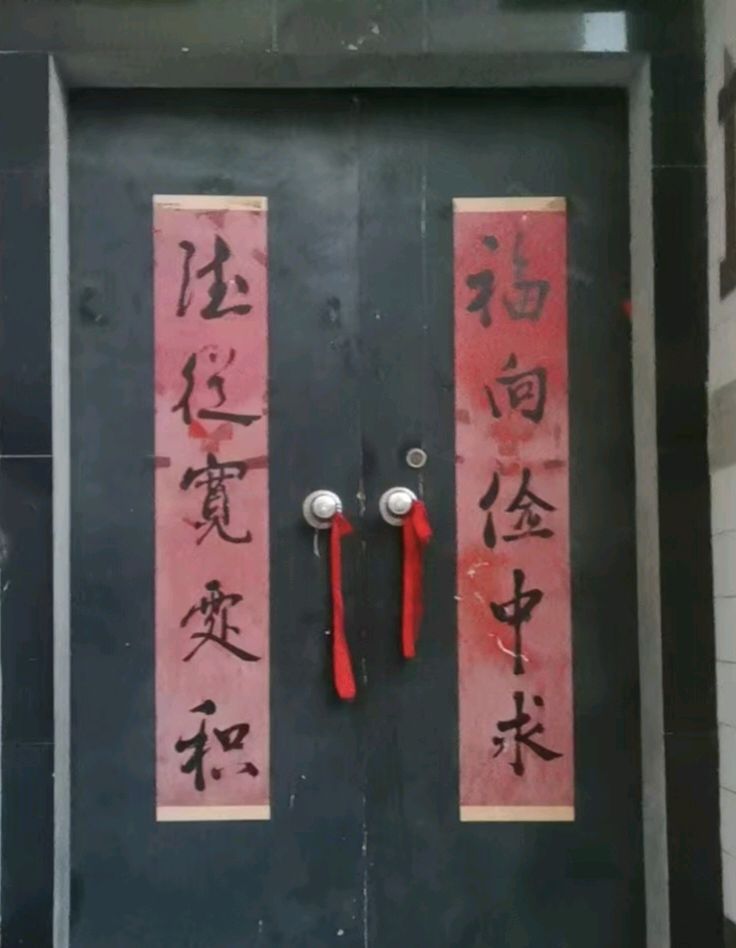 德從寬處积
福向俭中求